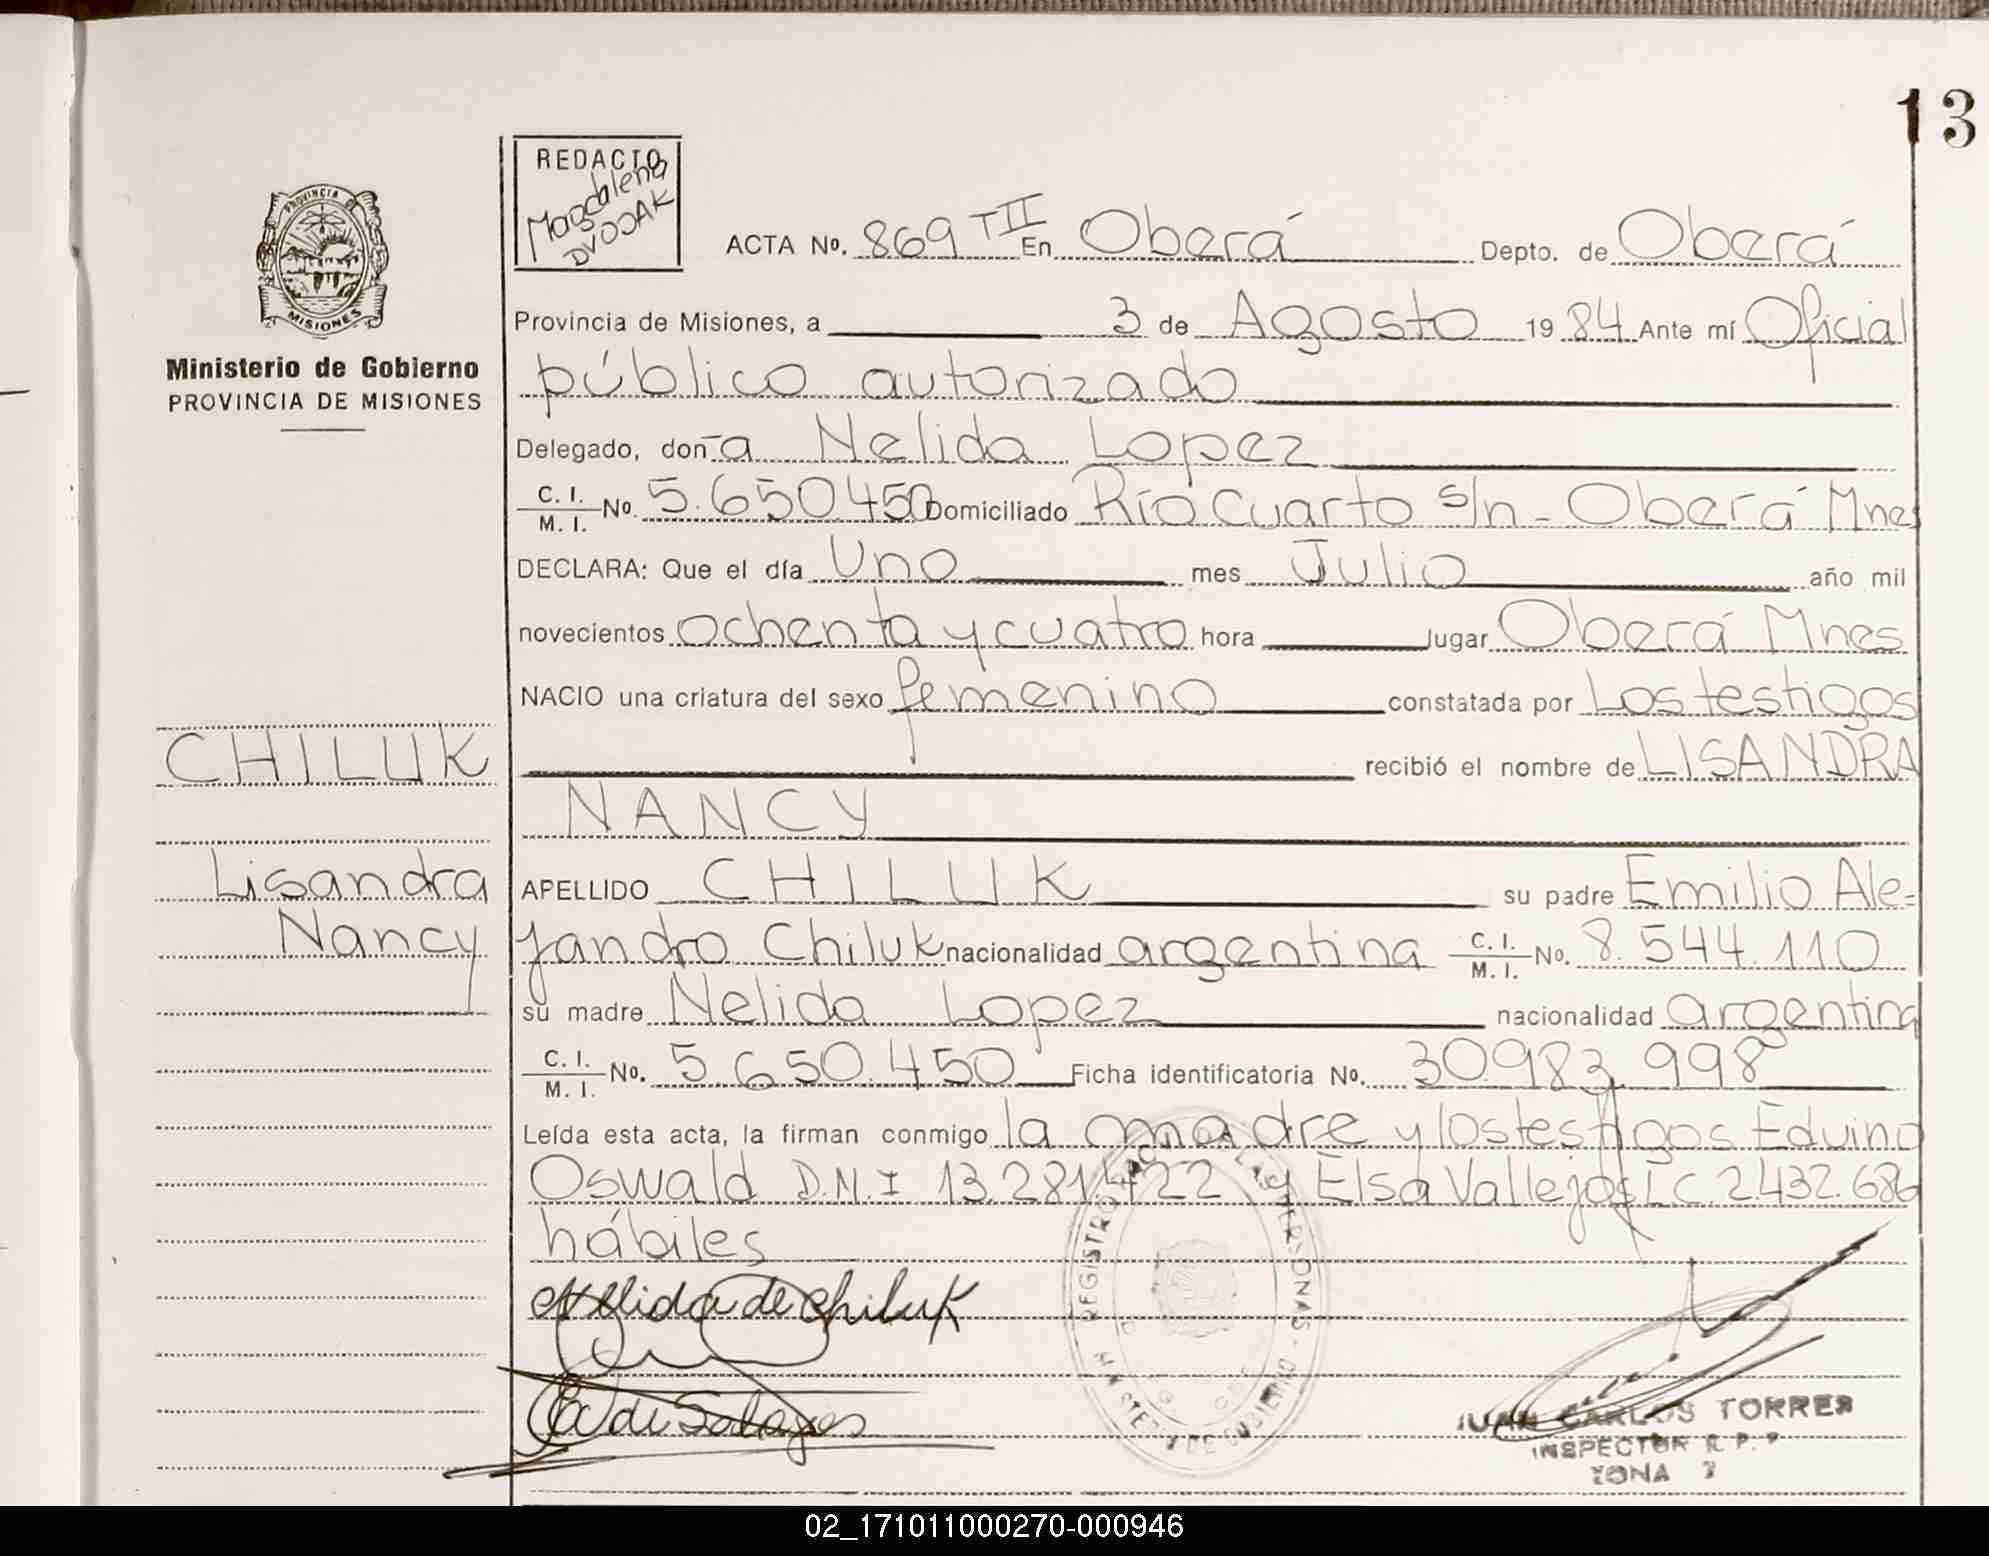 13
REDACTO
Magdalena
DVOJAK
ACTA No. 869 TII En Oberá Depto. de Oberá
PROVINCIA DE
MISIONES
Provincia de Misiones, a 3 de Agosto 1984 Ante mí Oficial
Ministerio de Gobierno
PROVINCIA DE MISIONES
público autorizado
Delegado, doña Nelida Lopez
C. I. / M. I. No. 5.650.450 Domiciliado Río Cuarto s/n - Oberá Mnes
DECLARA: Que el día Uno mes Julio año mil
novecientos ochenta y cuatro hora lugar Oberá Mnes
NACIO una criatura del sexo femenino constatada por Los testigos
CHILUK
recibió el nombre de LISANDRA
NANCY
Lisandra
Nancy
APELLIDO CHILUK su padre Emilio Ale=
jandro Chiluk nacionalidad argentina C. I. / M. I. No. 8.544.110
su madre Nelida Lopez nacionalidad argentina
C. I. / M. I. No. 5.650.450 Ficha identificatoria No. 30.983.998
Leída esta acta, la firman conmigo la madre y los testigos Eduino
Oswald D.N.I 13.281.422 y Elsa Vallejos L.C. 2.432.686
hábiles
Nelida de Chiluk
REGISTRO DE LAS PERSONAS
MINISTERIO DE GOBIERNO
JUAN CARLOS TORRES
INSPECTOR R. P. P
ZONA 7
02_171011000270-000946